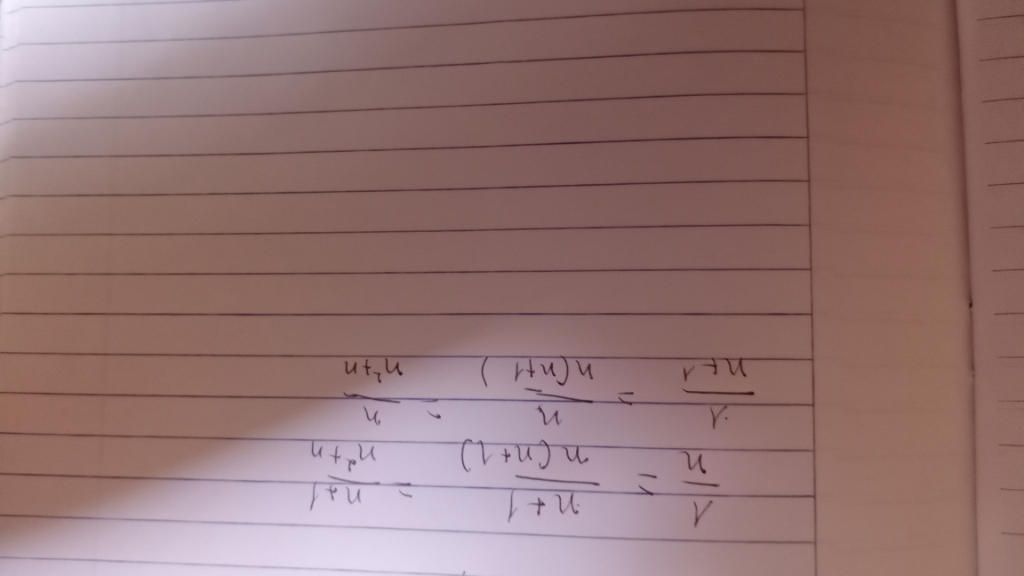 1/n = n+1/n(n+1) = n+1/n²+n
1/n+1 = n/n(n+1) = n/n²+n